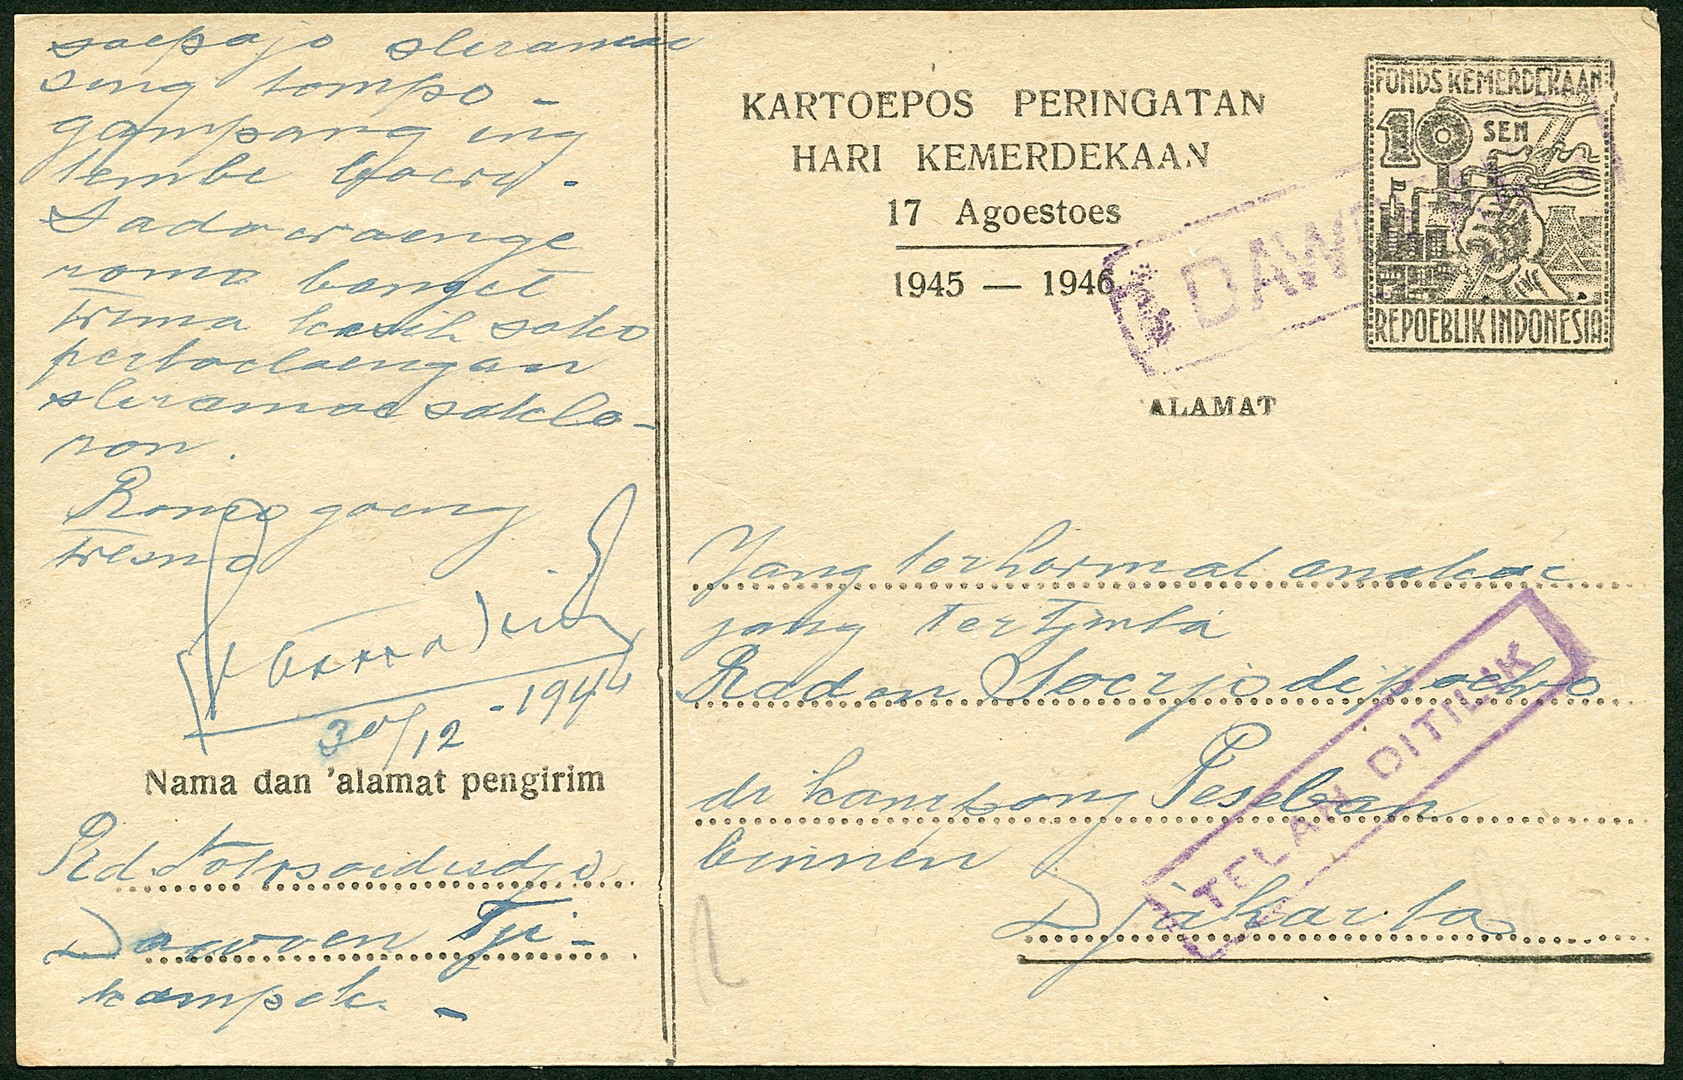 soepajo
sing tompo -
gampang ing
tembe boeri -
Sadawoenge
romo banget
trima kasih
pertoeloengan
ron.
Romo goeng
tresno
30/12 - 1944
Nama dan 'alamat pengirim
Rd
Dawoean Tji-
kampek. -
KARTOEPOS PERINGATAN
HARI KEMERDEKAAN
17 Agoestoes
1945 — 1946
FONDS KEMERDEKAAN
10 SEN
REPOEBLIK INDONESIA
ALAMAT
Jang terhormat
jang tertjinta
Raden Soerjodipoetro
di kampong Peseban
binnen
Djakarta
TELAH DITILIK